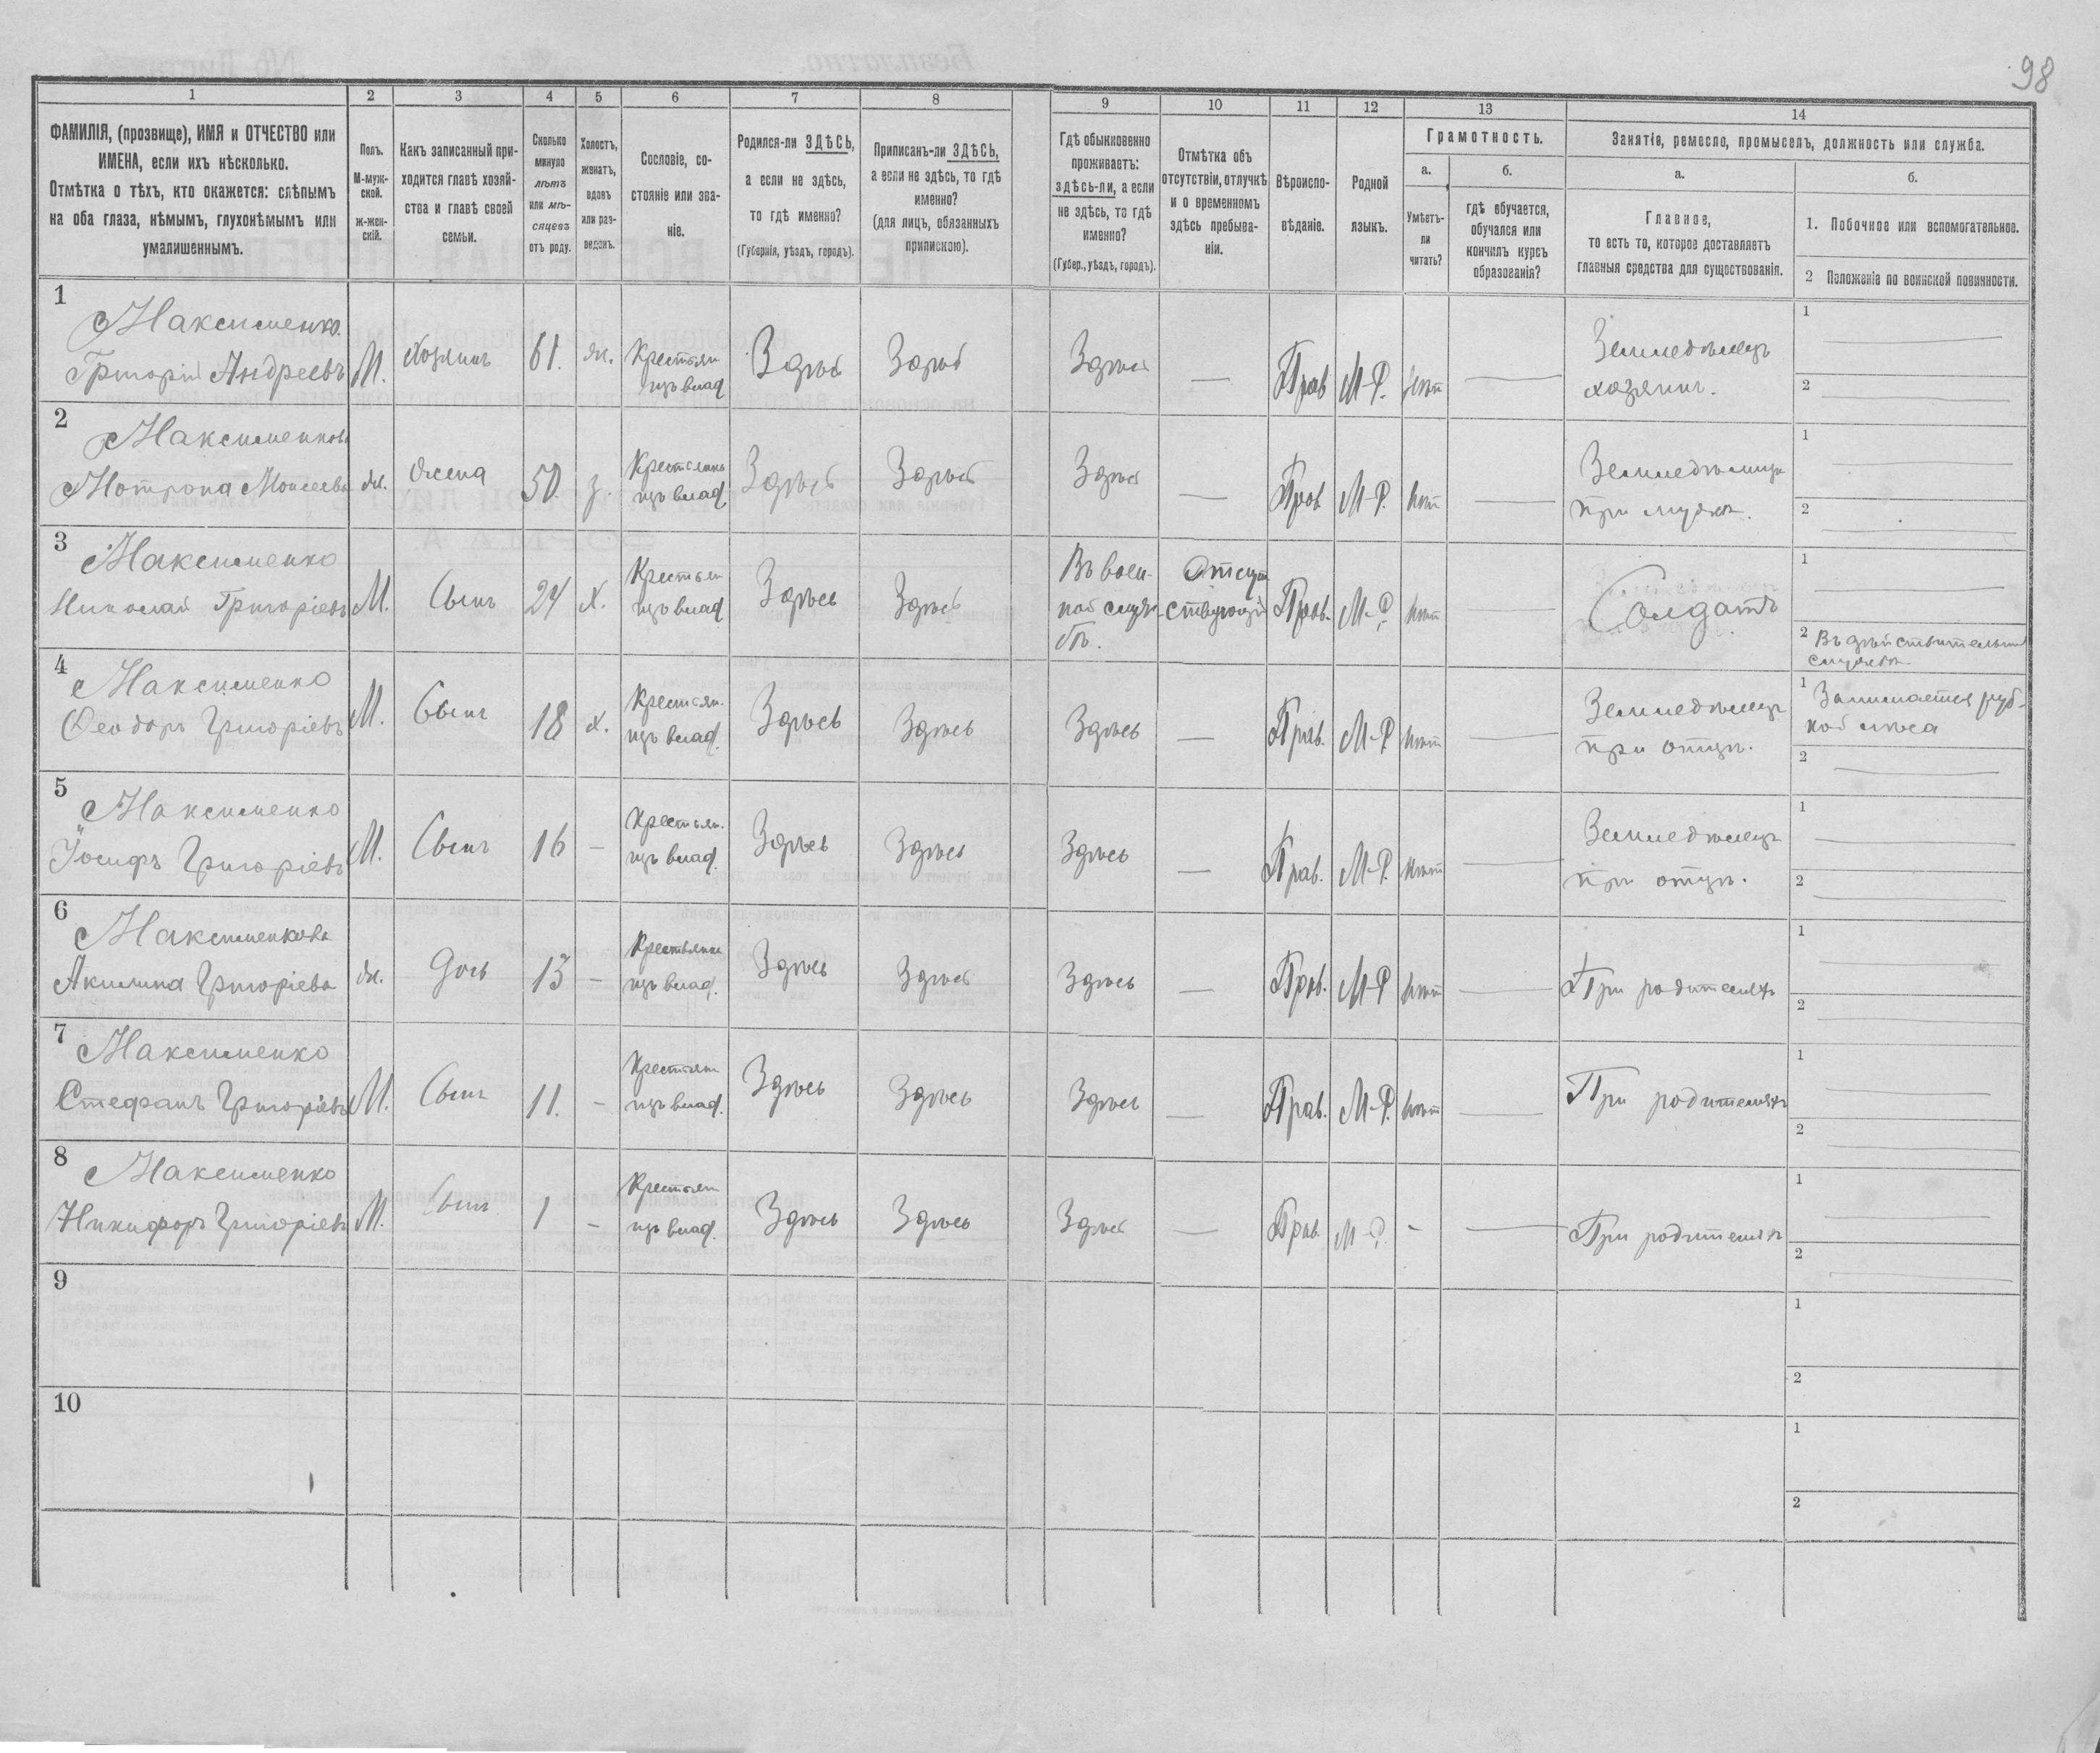 98
1
2
3
4
5
6
7
8
9
10
11
12
13
14
ФАМИЛІЯ, (прозвище), ИМЯ и ОТЧЕСТВО или
ИМЕНА, если ихъ нѣсколько.
Отмѣтка о тѣхъ, кто окажется: слѣпымъ
на оба глаза, нѣмымъ, глухонѣмымъ или
умалишеннымъ.
Полъ.
М-муж-
ской.
ж-жен-
скій.
Какъ записанный при-
ходится главѣ хозяй-
ства и главѣ своей
семьи.
Сколько
минуло
лѣтъ
или мѣ-
сяцевъ
отъ роду.
Холостъ,
женатъ,
вдовъ
или раз-
веденъ.
Сословіе, со-
стояніе или зва-
ніе.
Родился-ли ЗДѢСЬ,
а если не здѣсь,
то гдѣ именно?
(Губернія, уѣздъ, городъ).
Приписанъ-ли ЗДѢСЬ,
а если не здѣсь, то гдѣ
именно?
(для лицъ, обязанныхъ
припискою).
Гдѣ обыкновенно
проживаетъ:
здѣсь-ли, а если
не здѣсь, то гдѣ
именно?
(Губер., уѣздъ, городъ).
Отмѣтка объ
отсутствіи, отлучкѣ
и о временномъ
здѣсь пребыва-
ніи.
Вѣроиспо-
вѣданіе.
Родной
языкъ.
Грамотность.
а.
Умѣетъ-
ли
читать?
б.
гдѣ обучается,
обучался или
кончилъ курсъ
образованія?
Занятіе, ремесло, промыселъ, должность или служба.
а.
Главное,
то есть то, которое доставляетъ
главныя средства для существованія.
б.
1. Побочное или вспомогательное.
2 Положеніе по воинской повинности.
1
Максименко
Григорій Андреевъ
М.
Хозяинъ
61.
ж.
Крестьян
изъ влад
Здѣсь
Здѣсь
Здѣсь
—
Прав
М-Р.
нѣт
—
Земледѣлецъ
хозяинъ.
1 —
2 —
2
Максименкова
Мотрона Моисеева
ж.
Жена
50.
з.
Крестьянк
изъ влад
Здѣсь
Здѣсь
Здѣсь
—
Прав
М-Р.
нѣт
—
при мужѣ.
1 —
2 —
3
Максименко
Николай Григоріевъ
М.
Сынъ
24
х.
Крестьян
изъ влад
Здѣсь
Здѣсь
Въ воен-
ной служ-
бѣ.
Отсут
ствующій
Прав.
М-Р
нѣт
—
Солдатъ
1 —
2 Въ дѣйствительной
службѣ
4
Максименко
Феодоръ Григоріевъ
М.
Сынъ
18
х.
Крестьян.
изъ влад.
Здѣсь
Здѣсь
Здѣсь
—
Прав.
М-Р
нѣт
—
Земледѣлецъ
при отцѣ.
1 Занимается руб-
кой лѣса
2 —
5
Максименко
Іосифъ Григоріевъ
М.
Сынъ
16
—
Крестьян.
изъ влад.
Здѣсь
Здѣсь
Здѣсь
—
Прав.
М-Р.
нѣт
—
Земледѣлецъ
при отцѣ.
1 —
2 —
6
Максименкова
Акилина Григоріева
ж.
Дочь
13
—
Крестьянка
изъ влад.
Здѣсь
Здѣсь
Здѣсь
—
Прав.
М-Р
нѣт
—
При родителяхъ
1 —
2 —
7
Максименко
Стефанъ Григоріевъ
М.
Сынъ
11.
—
Крестьян
изъ влад.
Здѣсь
Здѣсь
Здѣсь
—
Прав.
М-Р.
нѣт
—
При родителяхъ
1 —
2 —
8
Максименко
Никифоръ Григоріевъ
М.
Сынъ
1
—
Крестьян
изъ влад.
Здѣсь
Здѣсь
Здѣсь
—
Прав.
М-Р.
-
—
При родителяхъ
1 —
2 —
9
1
2
10
1
2